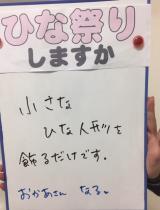 ひな祭り
しますか
小さな
ひな人形を
飾るだけです。
おかあさん なる